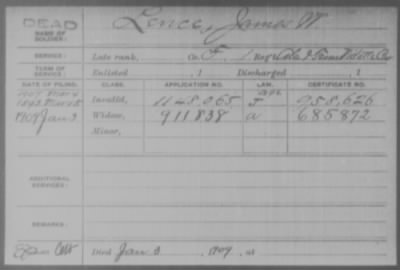 DEAD
NAME OF SOLDIER: Lence, James W.
SERVICE: Late rank, Co. F, 1 Reg't
TERM OF SERVICE: Enlisted , 1 Discharged , 1
DATE OF FILING. CLASS. APPLICATION NO. LAW. CERTIFICATE NO.
Invalid, 1148,065 J 958,626
1909 Jan 9 Widow, 911838 a 685872
Minor,
ADDITIONAL SERVICES:
REMARKS:
Died Jan 3, 1909, at